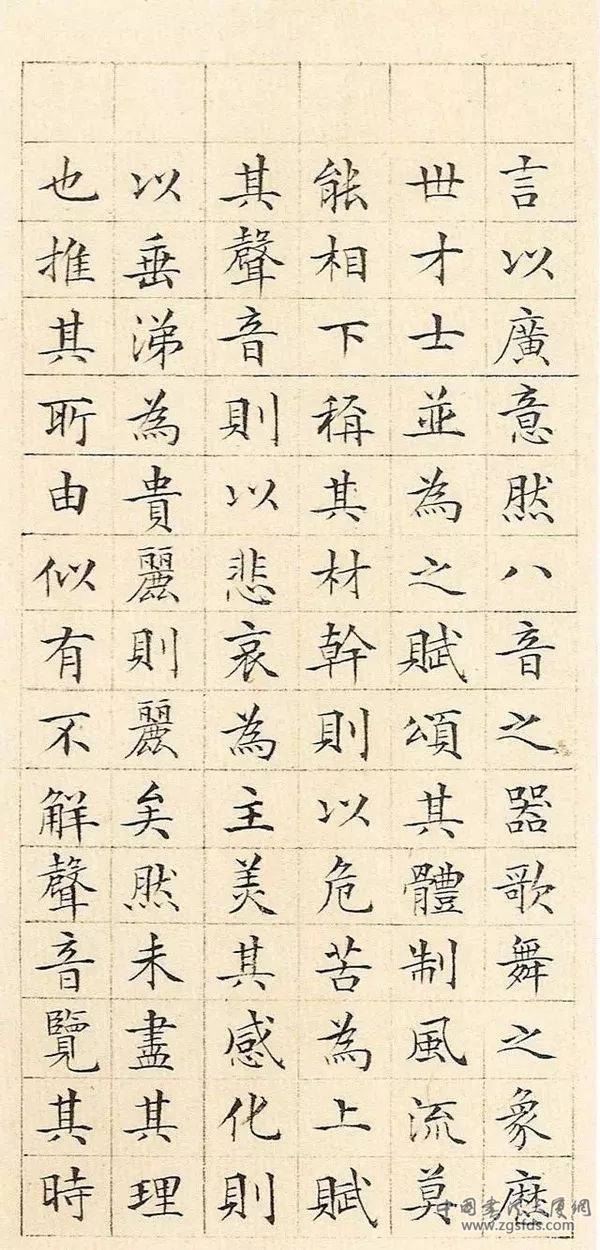 言以廣意然八音之器歌舞之象歴
世才士並為之賦頌其體制風流莫
能相下稱其材幹則以危苦為上賦
其聲音則以悲哀為主美其感化則
以垂涕為貴麗則麗矣然未盡其理
也推其所由似有不解聲音覽其時
www.zgsfds.com